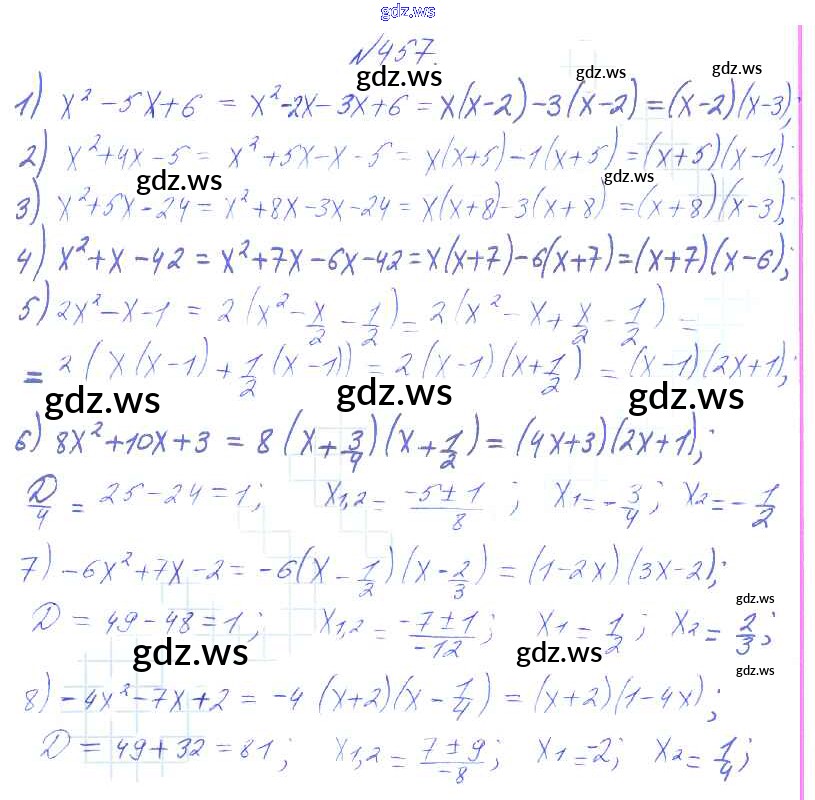 gdz.ws
№457.
gdz.ws gdz.ws gdz.ws
1) x² - 5x + 6 = x² - 2x - 3x + 6 = x(x-2) - 3(x-2) = (x-2)(x-3);
2) x² + 4x - 5 = x² + 5x - x - 5 = x(x+5) - 1(x+5) = (x+5)(x-1);
gdz.ws gdz.ws
3) x² + 5x - 24 = x² + 8x - 3x - 24 = x(x+8) - 3(x+8) = (x+8)(x-3);
4) x² + x - 42 = x² + 7x - 6x - 42 = x(x+7) - 6(x+7) = (x+7)(x-6);
5) 2x² - x - 1 = 2(x² - x/2 - 1/2) = 2(x² - x + x/2 - 1/2) =
= 2(x(x-1) + 1/2(x-1)) = 2(x-1)(x + 1/2) = (x-1)(2x+1);
gdz.ws gdz.ws gdz.ws
6) 8x² + 10x + 3 = 8(x + 3/4)(x + 1/2) = (4x+3)(2x+1);
D/4 = 25 - 24 = 1; x₁,₂ = (-5 ± 1)/8; x₁ = -3/4; x₂ = -1/2
7) -6x² + 7x - 2 = -6(x - 1/2)(x - 2/3) = (1-2x)(3x-2);
gdz.ws
D = 49 - 48 = 1; x₁,₂ = (-7 ± 1)/-12; x₁ = 1/2; x₂ = 2/3;
gdz.ws gdz.ws gdz.ws
8) -4x² - 7x + 2 = -4(x+2)(x - 1/4) = (x+2)(1-4x);
D = 49 + 32 = 81; x₁,₂ = (7 ± 9)/-8; x₁ = -2; x₂ = 1/4;